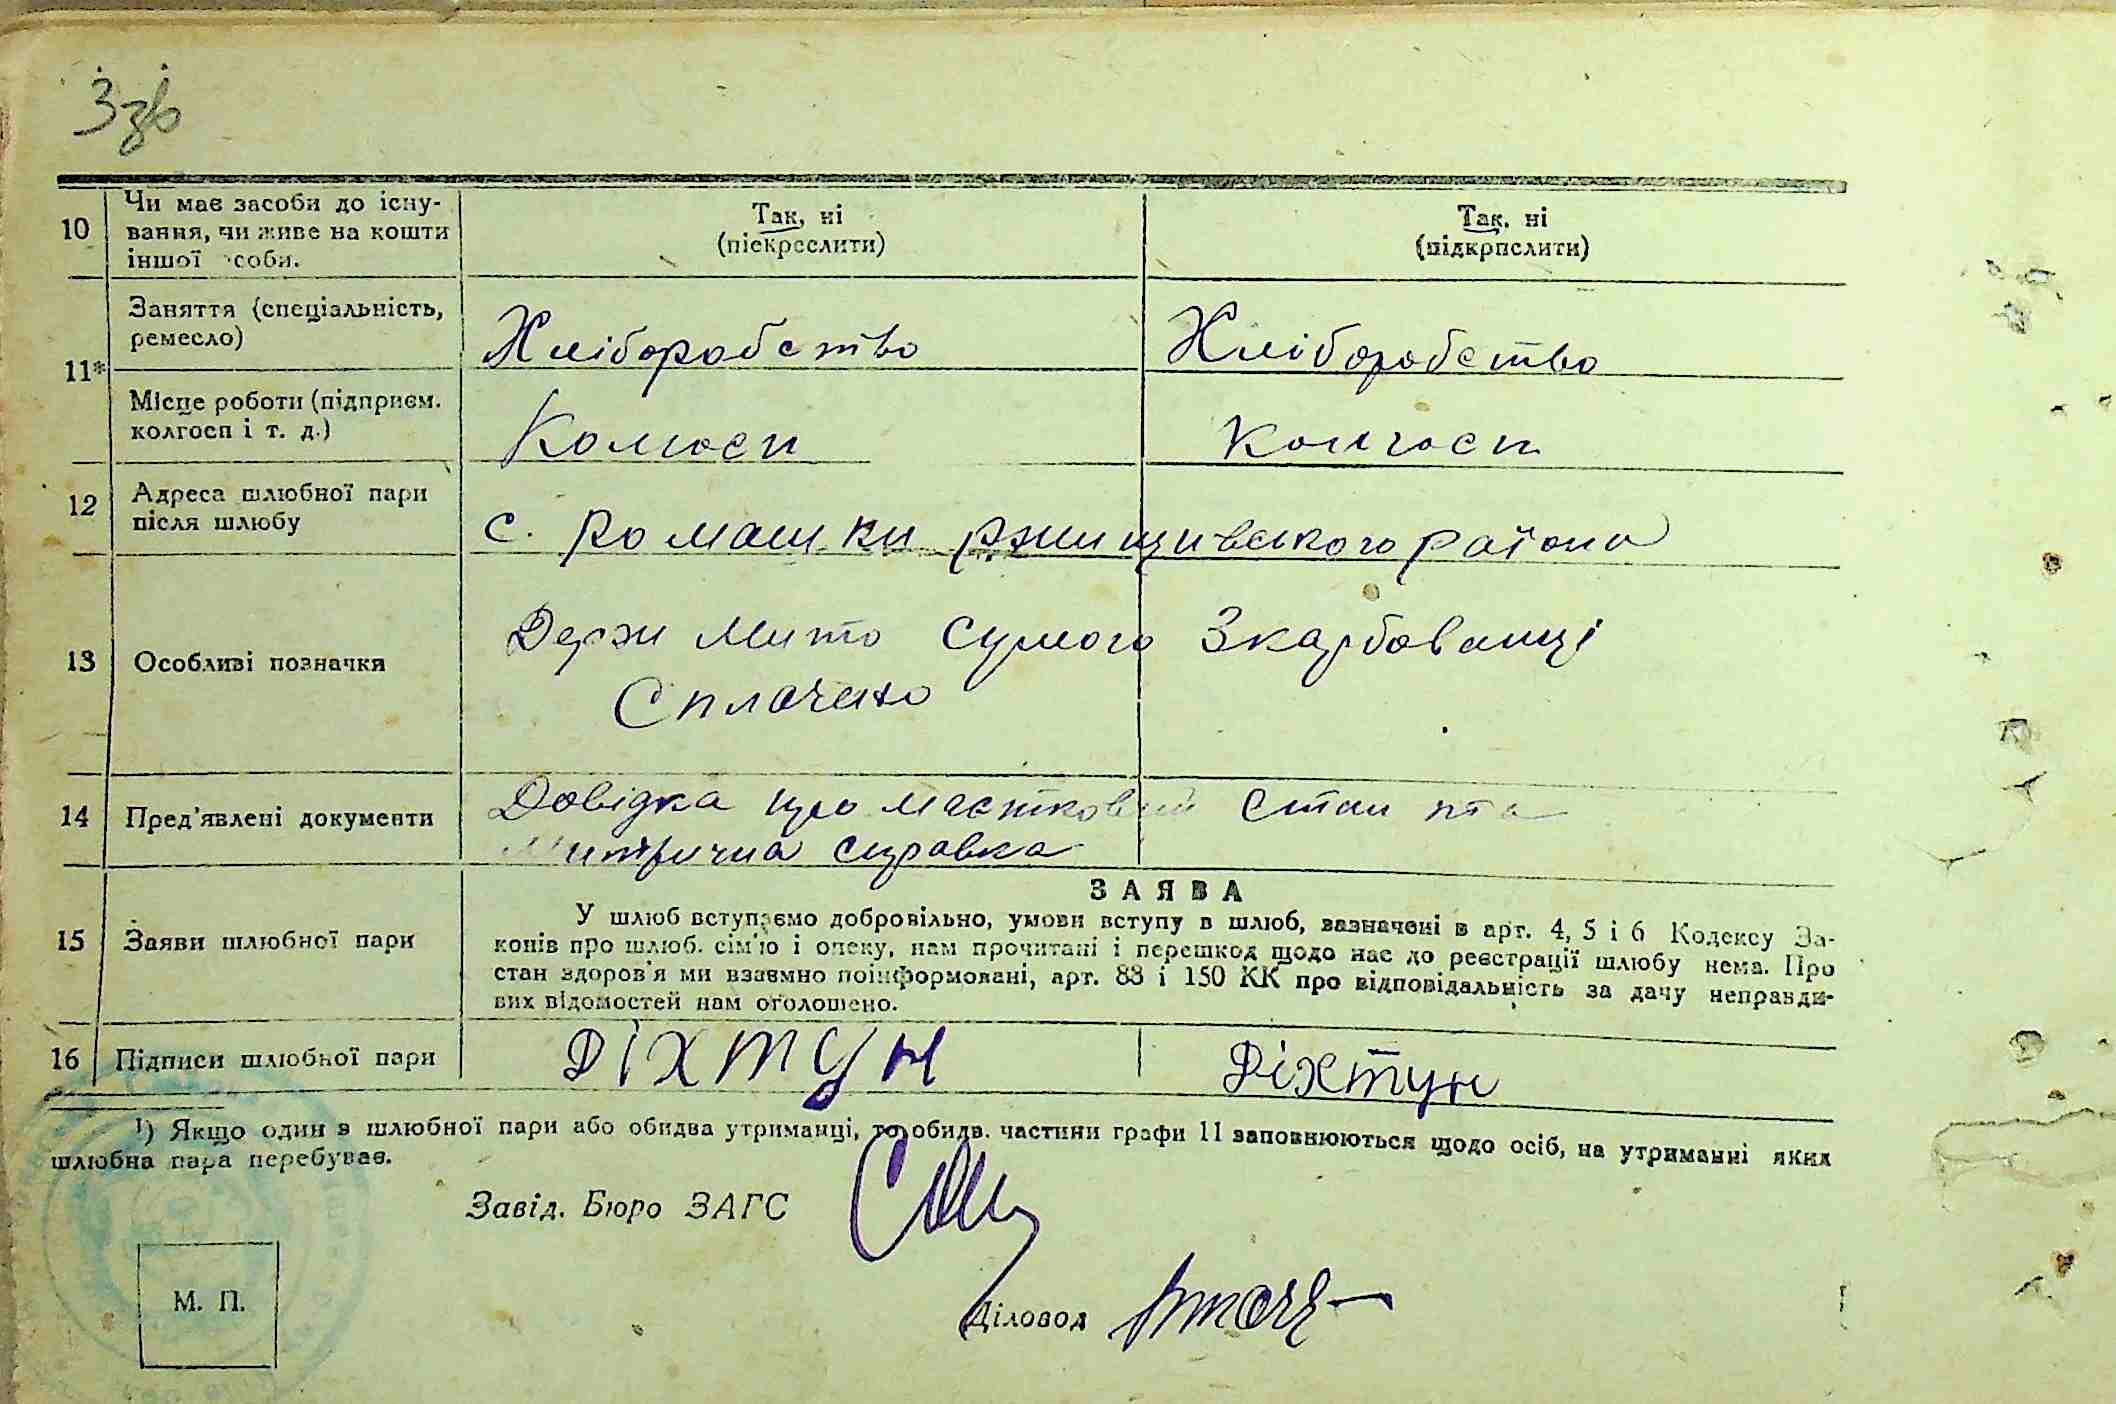 3зв
10 Чи має засоби до існу-
вання, чи живе на кошти
іншої особи.
Так, ні
(піекреслити)
Так, ні
(підкрпслити)
11* Заняття (спеціальність,
ремесло)
Хліборобство
Хліборобство
Місце роботи (підприєм.
колгосп і т. д.)
Колгосп
Колгосп
12 Адреса шлюбної пари
після шлюбу
с. Ромашки Ржищивського района
13 Особливі позначки
Держ Мито сумою 3 карбованці
Сплочено
14 Пред'явлені документи
Довідка про маєтковий стан та
Митрична справка
15 Заяви шлюбної пари
ЗАЯВА
У шлюб вступаємо добровільно, умови вступу в шлюб, зазначені в арт. 4, 5 і 6 Кодексу За-
конів про шлюб. сім'ю і опеку, нам прочитані і перешкод щодо нас до реєстрації шлюбу нема. Про
стан здоров'я ми взаємно поінформовані, арт. 88 і 150 КК про відповідальність за дачу неправди-
вих відомостей нам оголошено.
16 Підписи шлюбної пари
Діхтун
Діхтун
¹) Якщо один з шлюбної пари або обидва утриманці, то обидв. частини графи 11 заповнюються щодо осіб, на утриманні яких
шлюбна пара перебуває.
Завід. Бюро ЗАГС
М. П.
Діловод